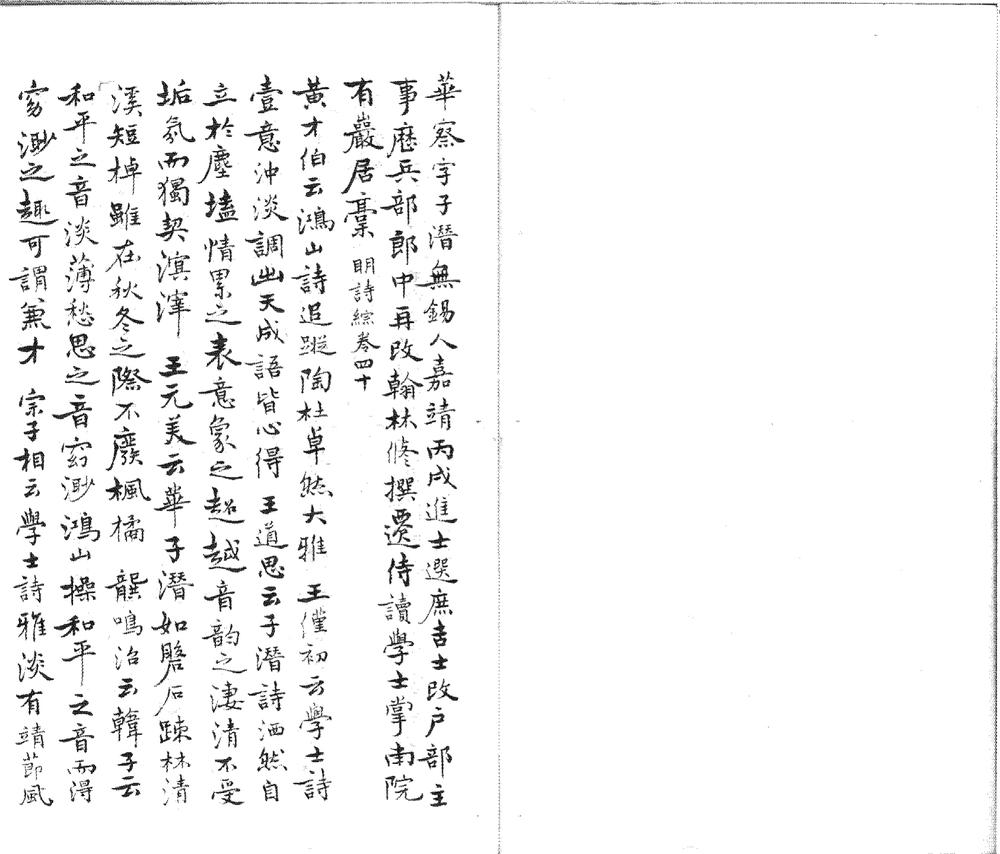 華察字子潛無錫人嘉靖丙戌進士選庶吉士改戶部主
事歷兵部郎中再改翰林修撰遷侍讀學士掌南院
有巖居稾 明詩綜卷四十
黃才伯云鴻山詩追蹤陶杜卓然大雅 王僅初云學士詩
壹意沖淡調出天成語皆心得 王道思云子潛詩洒然自
立於塵壒情累之表意象之超越音韵之淒清不受
垢氛而獨契溟涬 王元美云華子潛如磐石踈林清
溪短棹雖在秋冬之際不廢楓橘 龔鳴治云韓子云
和平之音淡薄愁思之音窈渺鴻山操和平之音而得
窈渺之趣可謂兼才 宗子相云學士詩雅淡有靖節風